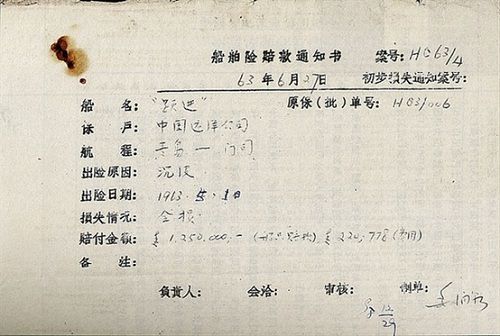 船舶险赔款通知书 案号：HC63/4
63年6月27日 初步损失通知案号：
船 名："跃进" 原保（批）单号：HC3/006
保 户：中国远洋公司
航 程：青岛 — 门司
出险原因：沉没
出险日期：1963.5.1日
损失情况：全损
赔付金额：£1,250,000,-（船只赔款）£220,778（费用）
备 注：
负责人： 会洽： 审核： 制单：
12/29